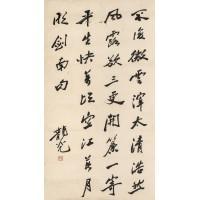 不復微雲滓太清浩然
風露欲三更開簾一寄
平生快萬頃空江著月
明劍南句